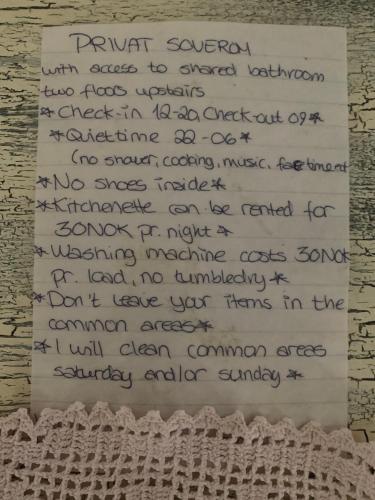 PRIVAT SOVEROM
with access to shared bathroom
two floors upstairs
*Check-in 12-20, Check-out 09*
*Quiettime 22-06*
(no shower, cooking, music, facetime
*No shoes inside*
*Kitchenette can be rented for
30NOK pr. night*
*Washing machine costs 30NOK
pr. load, no tumbledry*
*Don't leave your items in the
common areas*
*I will clean common areas
saturday and/or sunday*